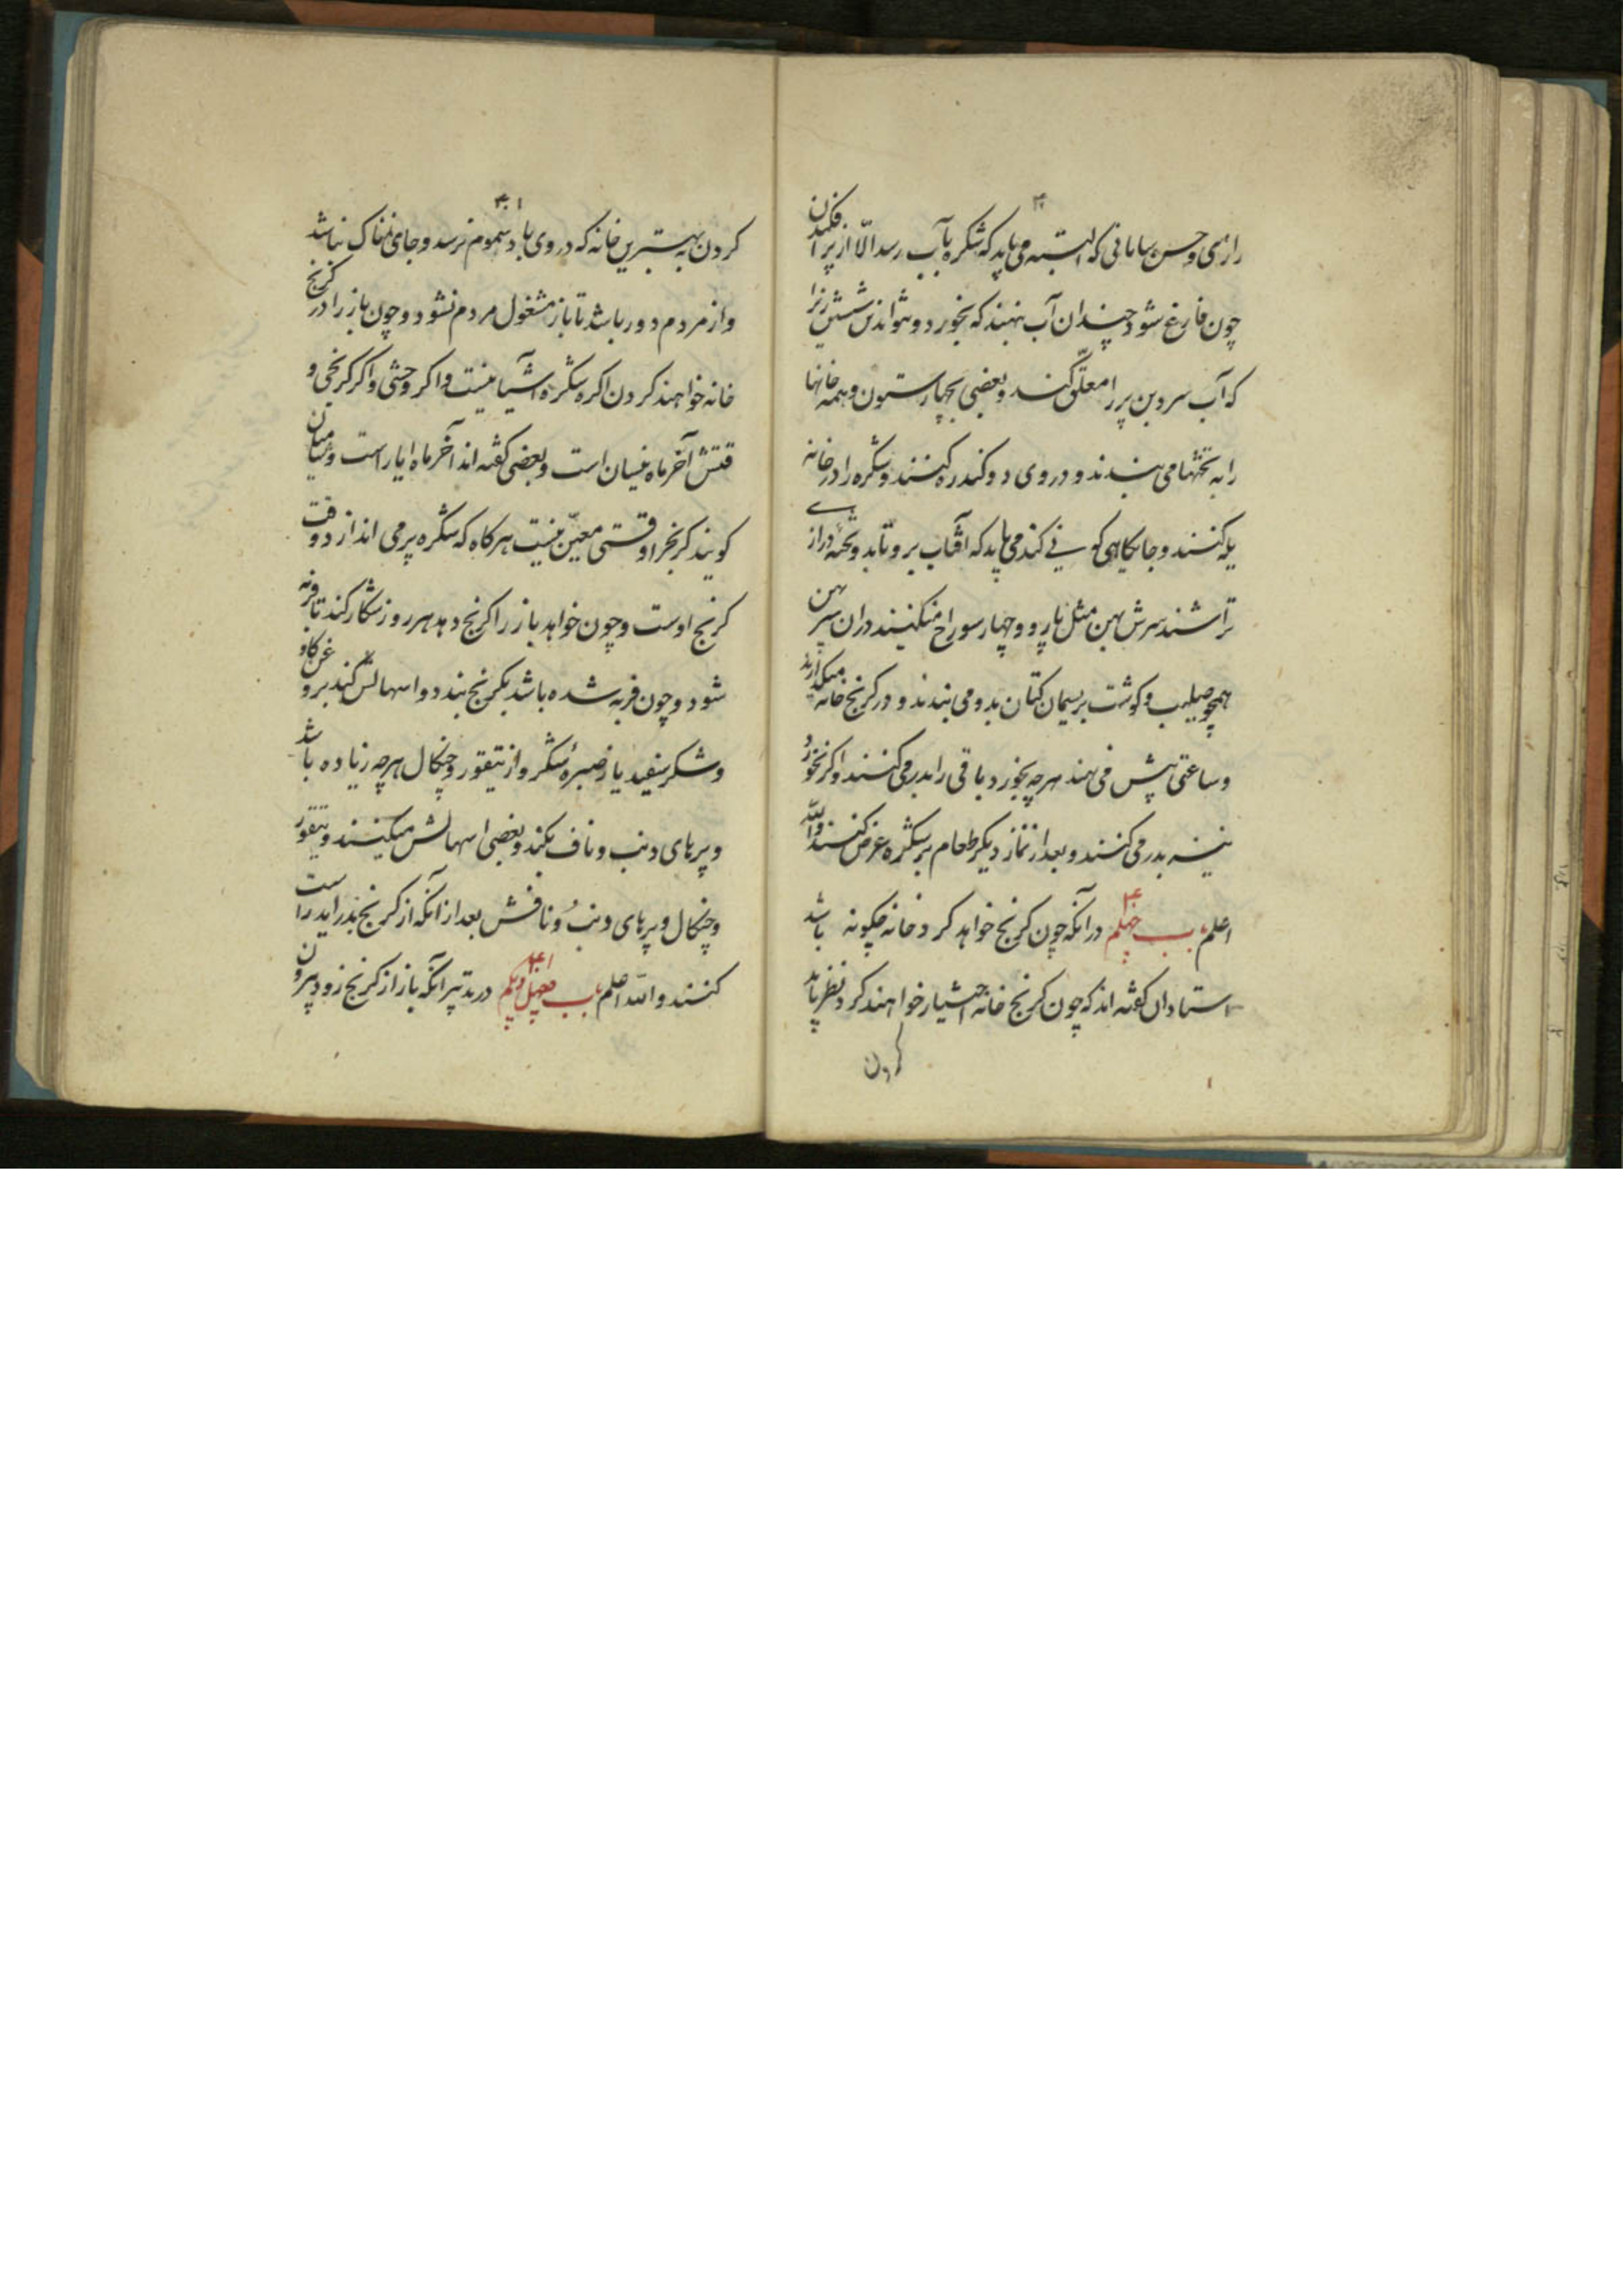 ۴۰
رازی و حسن سامانی که البته می باید که شکره بآب رسد الا از پر افکندن
چون فارغ شود چندان آب نهند که بخورد و نتواند شستن زیرا
که آب سرد بن پر را معلق کند و بعضی بچهار ستون و همه خانها
را به تختها می بندند و در وی دو کندره کنند و شکره را در خانه
یله کنند و جایگاهی کو نی کند می باید که آفتاب برو تابد و تخته درازی
تراشند سرش پهن مثل پارو و چهار سوراخ میکنند در ان سر پهن
همچو صلیب و کوشت بریسمان کتان بدو می بندند و در کریج خانه میگذارند
و ساعتی پیش می نهند هر چه بخورد باقی را بدر می کنند و اکر نخورد
نیز بدر می کنند و بعد از نماز دیکر طعام بر شکره عرض کنند والله
اعلم باب چهلم ۴۰ در آنکه چون کریج خواهد کرد خانه چکونه باشد
استادان کفته اند که چون کریج خانه اختیار خواهند کرد نظر باید
کردن
۴۰۱
کردن به بهترین خانه که در وی باد سموم نرسد و جای نمناک نباشد
و از مردم دور باشد تا باز مشغول مردم نشود و چون باز را در کریج
خانه خواهند کردن اکر شکره آشیانیست و اکر وحشی و اکر کریجی و
قتش آخر ماه نیسان است و بعضی کفته اند آخر ماه ایار است و
کویند کریجرا وقتی معین نیست هر کاه که شکره پر می اندازد وقت
کریج اوست و چون خواهد باز را کریج دهد هر روز شکار کند تا فربه
شود و چون فربه شده باشد بکریج بندد و اسهالش کند بروغن کاو
و شکر سفید یا از شکر و از تیقور و چنکال هر چه زیاده باشد
و پرهای دنب و ناف بکند و بعضی اسهالش میکنند و تیقور
و چنکال و پرهای دنب و نافش بعد از آنکه از کریج بدر آید راست
کنند والله اعلم باب چهل و یکم ۴۱ در تدبیر آنکه باز از کریج زود بیرون